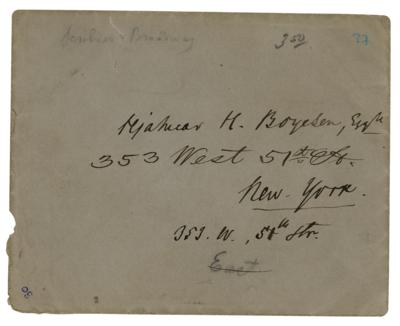 Scribner Broadway
3 50
37
Hjalmar H. Boyesen, Esq
353 West 51st St.
New-York.
353. W., 51th Str.
East
30